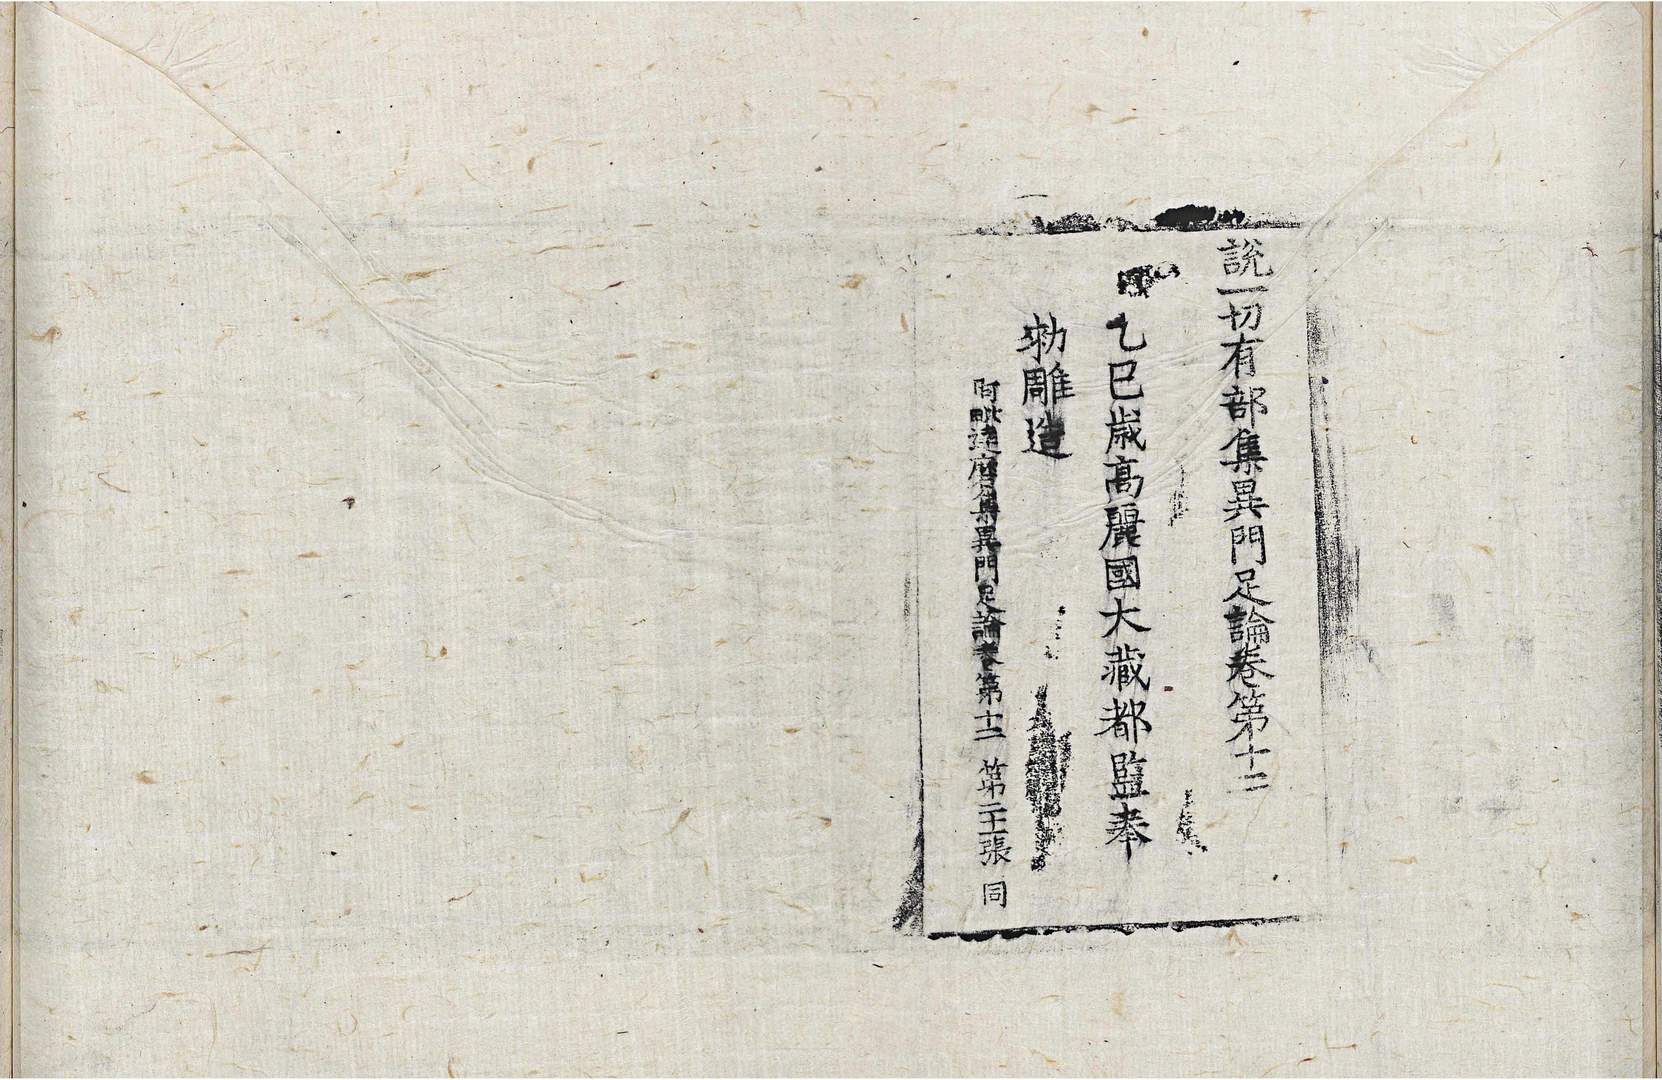 說一切有部集異門足論卷第十二
乙巳歲高麗國大藏都監奉
勑雕造
阿毗達磨集異門足論卷第十二 第二十一張 同